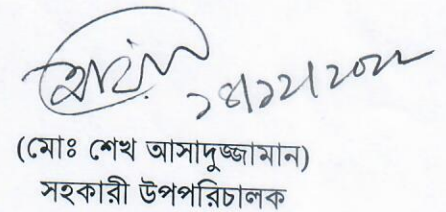 ১৪/১২/২০২২
(মোঃ শেখ আসাদুজ্জামান)
সহকারী উপপরিচালক